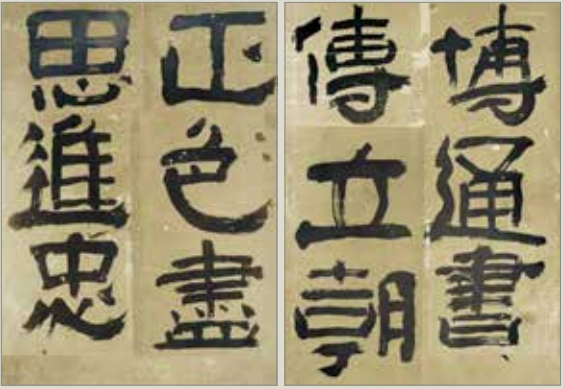 博通書
傳立朝
正色盡
思進忠